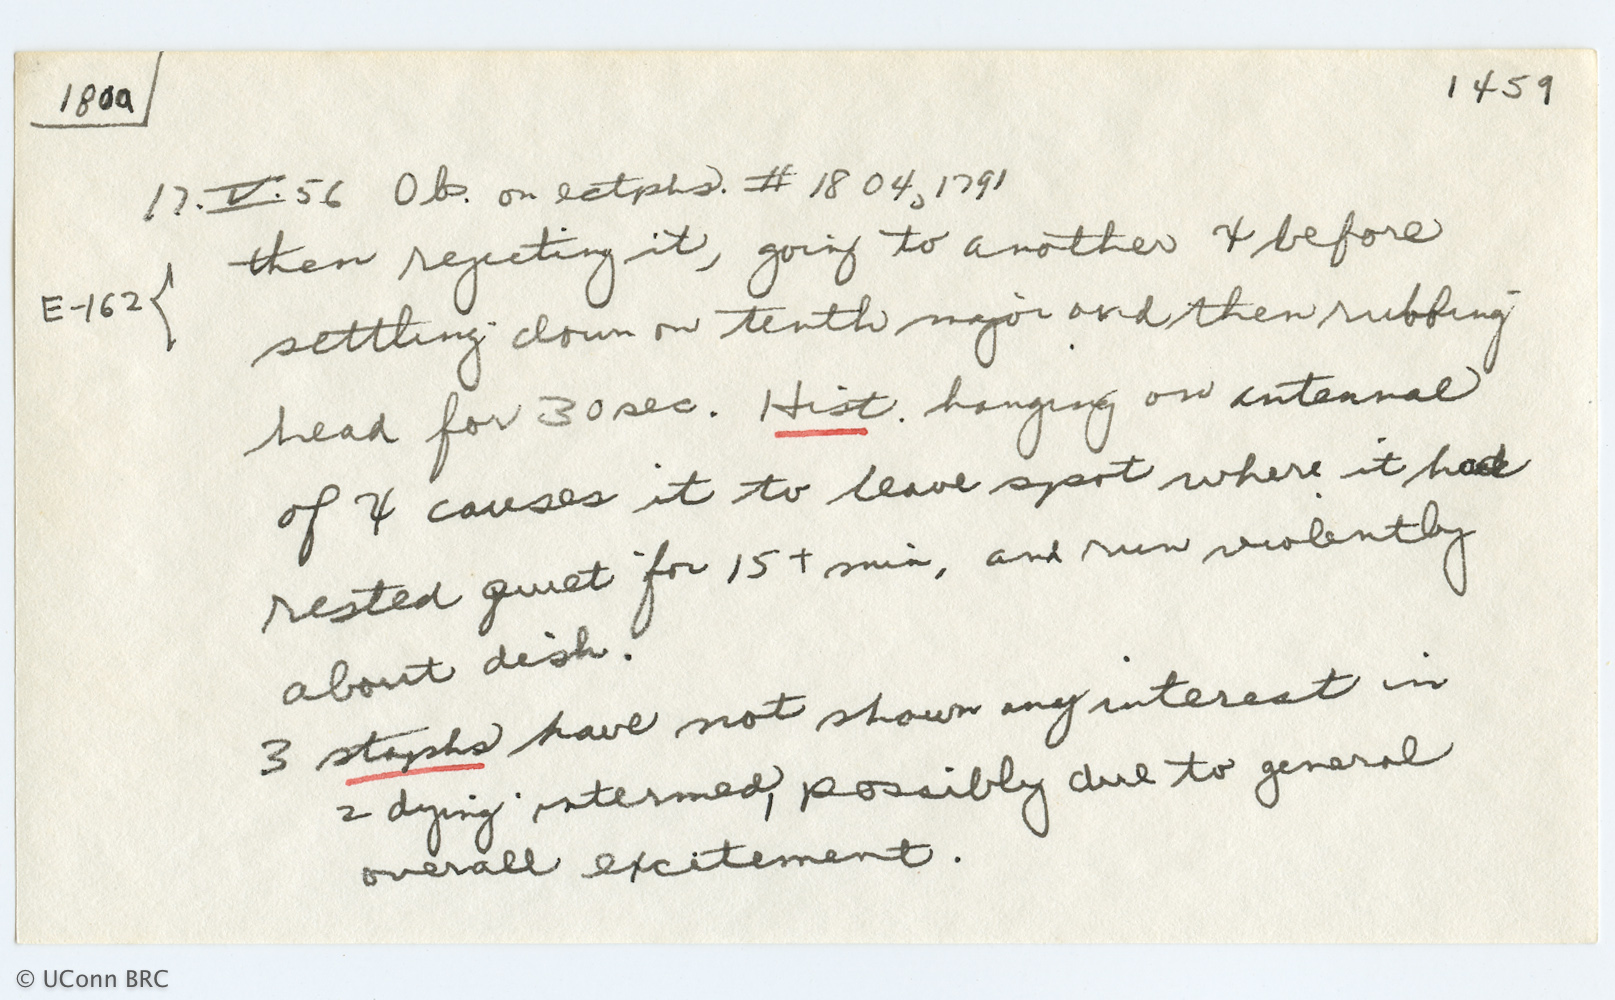 180a
1459
17.V.56 Ob. on ectphs. # 1804, 1791
then rejecting it, going to another 4 before
E-162 {
settling down on tenth major and then rubbing
head for 30 sec. Hist. hanging on antennal
of 4 causes it to leave spot where it had
rested quiet for 15+ min, and run violently
about dish.
3 staphs have not shown any interest in
2 dying intermed, possibly due to general
overall excitement.
© UConn BRC